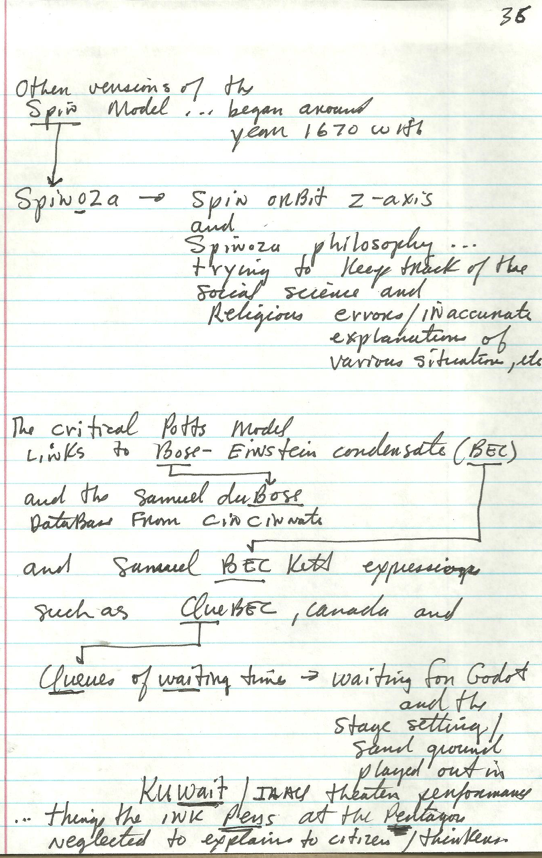 36
Other versions of the
Spin Model ... began around
year 1670 with
Spinoza → Spin orbit z-axis
and
Spinoza philosophy ...
trying to keep track of the
social science and
Religious errors/inaccurate
explanations of
various situation, etc
The critical Potts Model
Links to Bose-Einstein condensate (BEC)
and the Samuel du Bose
DataBase From Cincinnate
and Samuel BEC Kett expressions
such as QueBEC, Canada and
Queues of waiting time → waiting for Godot
and the
stage setting/
sand ground
played out in
Kuwait / IRAQ theater performance
... things the ink Pens at the Pentagon
neglected to explains to citizen/thinkers